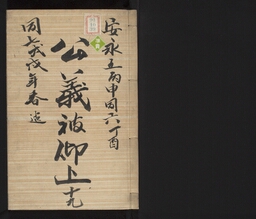 安永五丙申同六丁酉
公義被仰上
同七戊戌年春迄